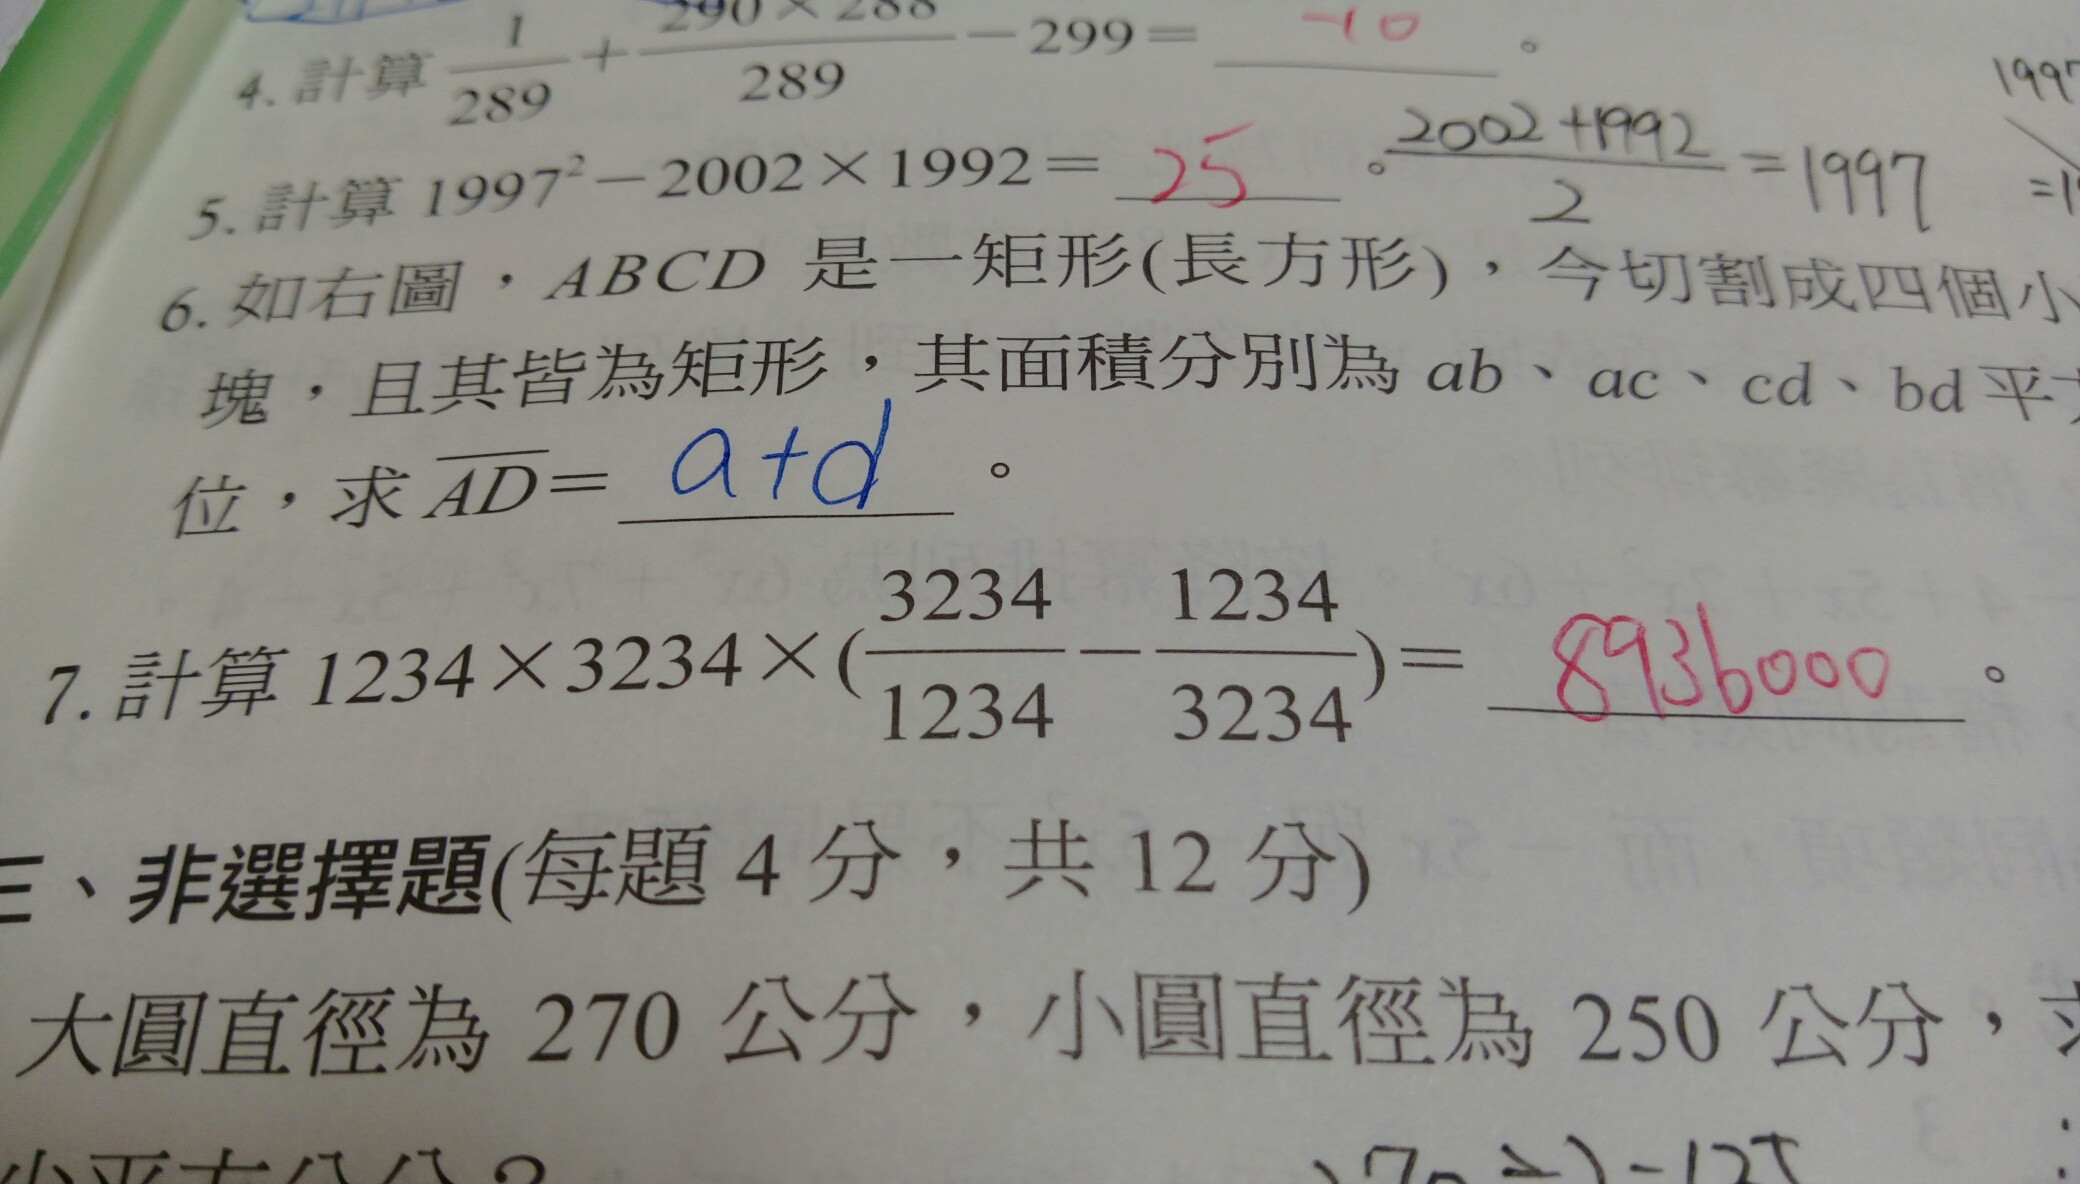 4. 計算 1/289 + 290×288/289 −299= -10 。
5. 計算 1997²−2002×1992= 25 。 2002+1992/2 =1997
6. 如右圖，ABCD 是一矩形(長方形)，今切割成四個小
塊，且其皆為矩形，其面積分別為 ab、ac、cd、bd 平
位，求 AD= a+d 。
7. 計算 1234×3234×(3234/1234−1234/3234)= 8936000 。
三、非選擇題(每題 4 分，共 12 分)
大圓直徑為 270 公分，小圓直徑為 250 公分，